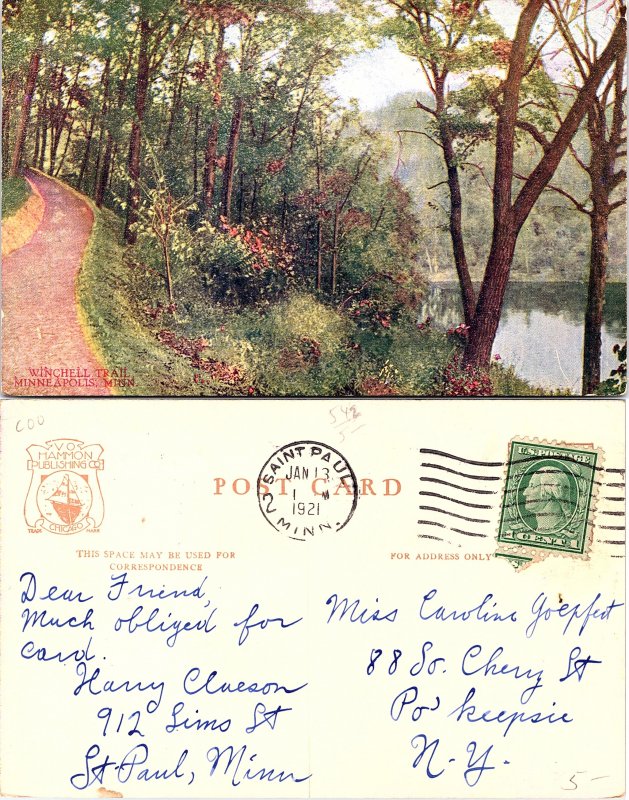 WINCHELL TRAIL
MINNEAPOLIS, MINN.
COO
542
5-
V.O.
HAMMON
PUBLISHING CO
CHICAGO
TRADE MARK
POST CARD
SAINT PAUL
JAN 13
1 M
1921
MINN.
U.S. POSTAGE
THIS SPACE MAY BE USED FOR
CORRESPONDENCE
FOR ADDRESS ONLY
Dear Friend,
Much obliged for
card.
Harry Clueson
912 Sims St
St. Paul, Minn
Miss Caroline Goepfert
88 So. Cherry St
Po' keepsie
N. Y.
5-